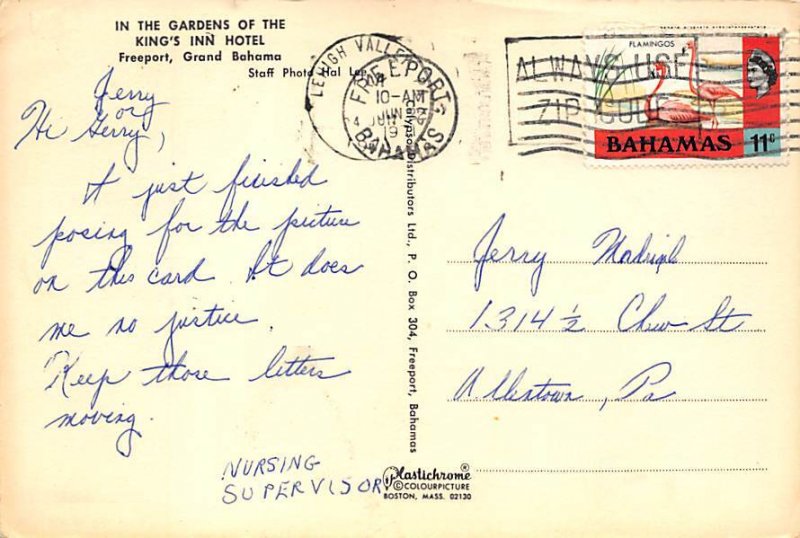 IN THE GARDENS OF THE
KING'S INN HOTEL
Freeport, Grand Bahama
Staff Photo Hal
Jerry
or
Hi Gerry,
I just finished
posing for the picture
on this card. It does
me no justice.
Keep those letters
moving.
NURSING
SUPERVISOR
Calypso Distributors Ltd., P. O. Box 304, Freeport, Bahamas
Plastichrome ®
© COLOURPICTURE
BOSTON, MASS. 02130
LEHIGH VALLEY
FREEPORT
10-AM
JUN
19
BAHAMAS
ALWAYS USE
ZIP CODE
FLAMINGOS
BAHAMAS 11c
Jerry
1314 ½ Chew St
Allentown, Pa